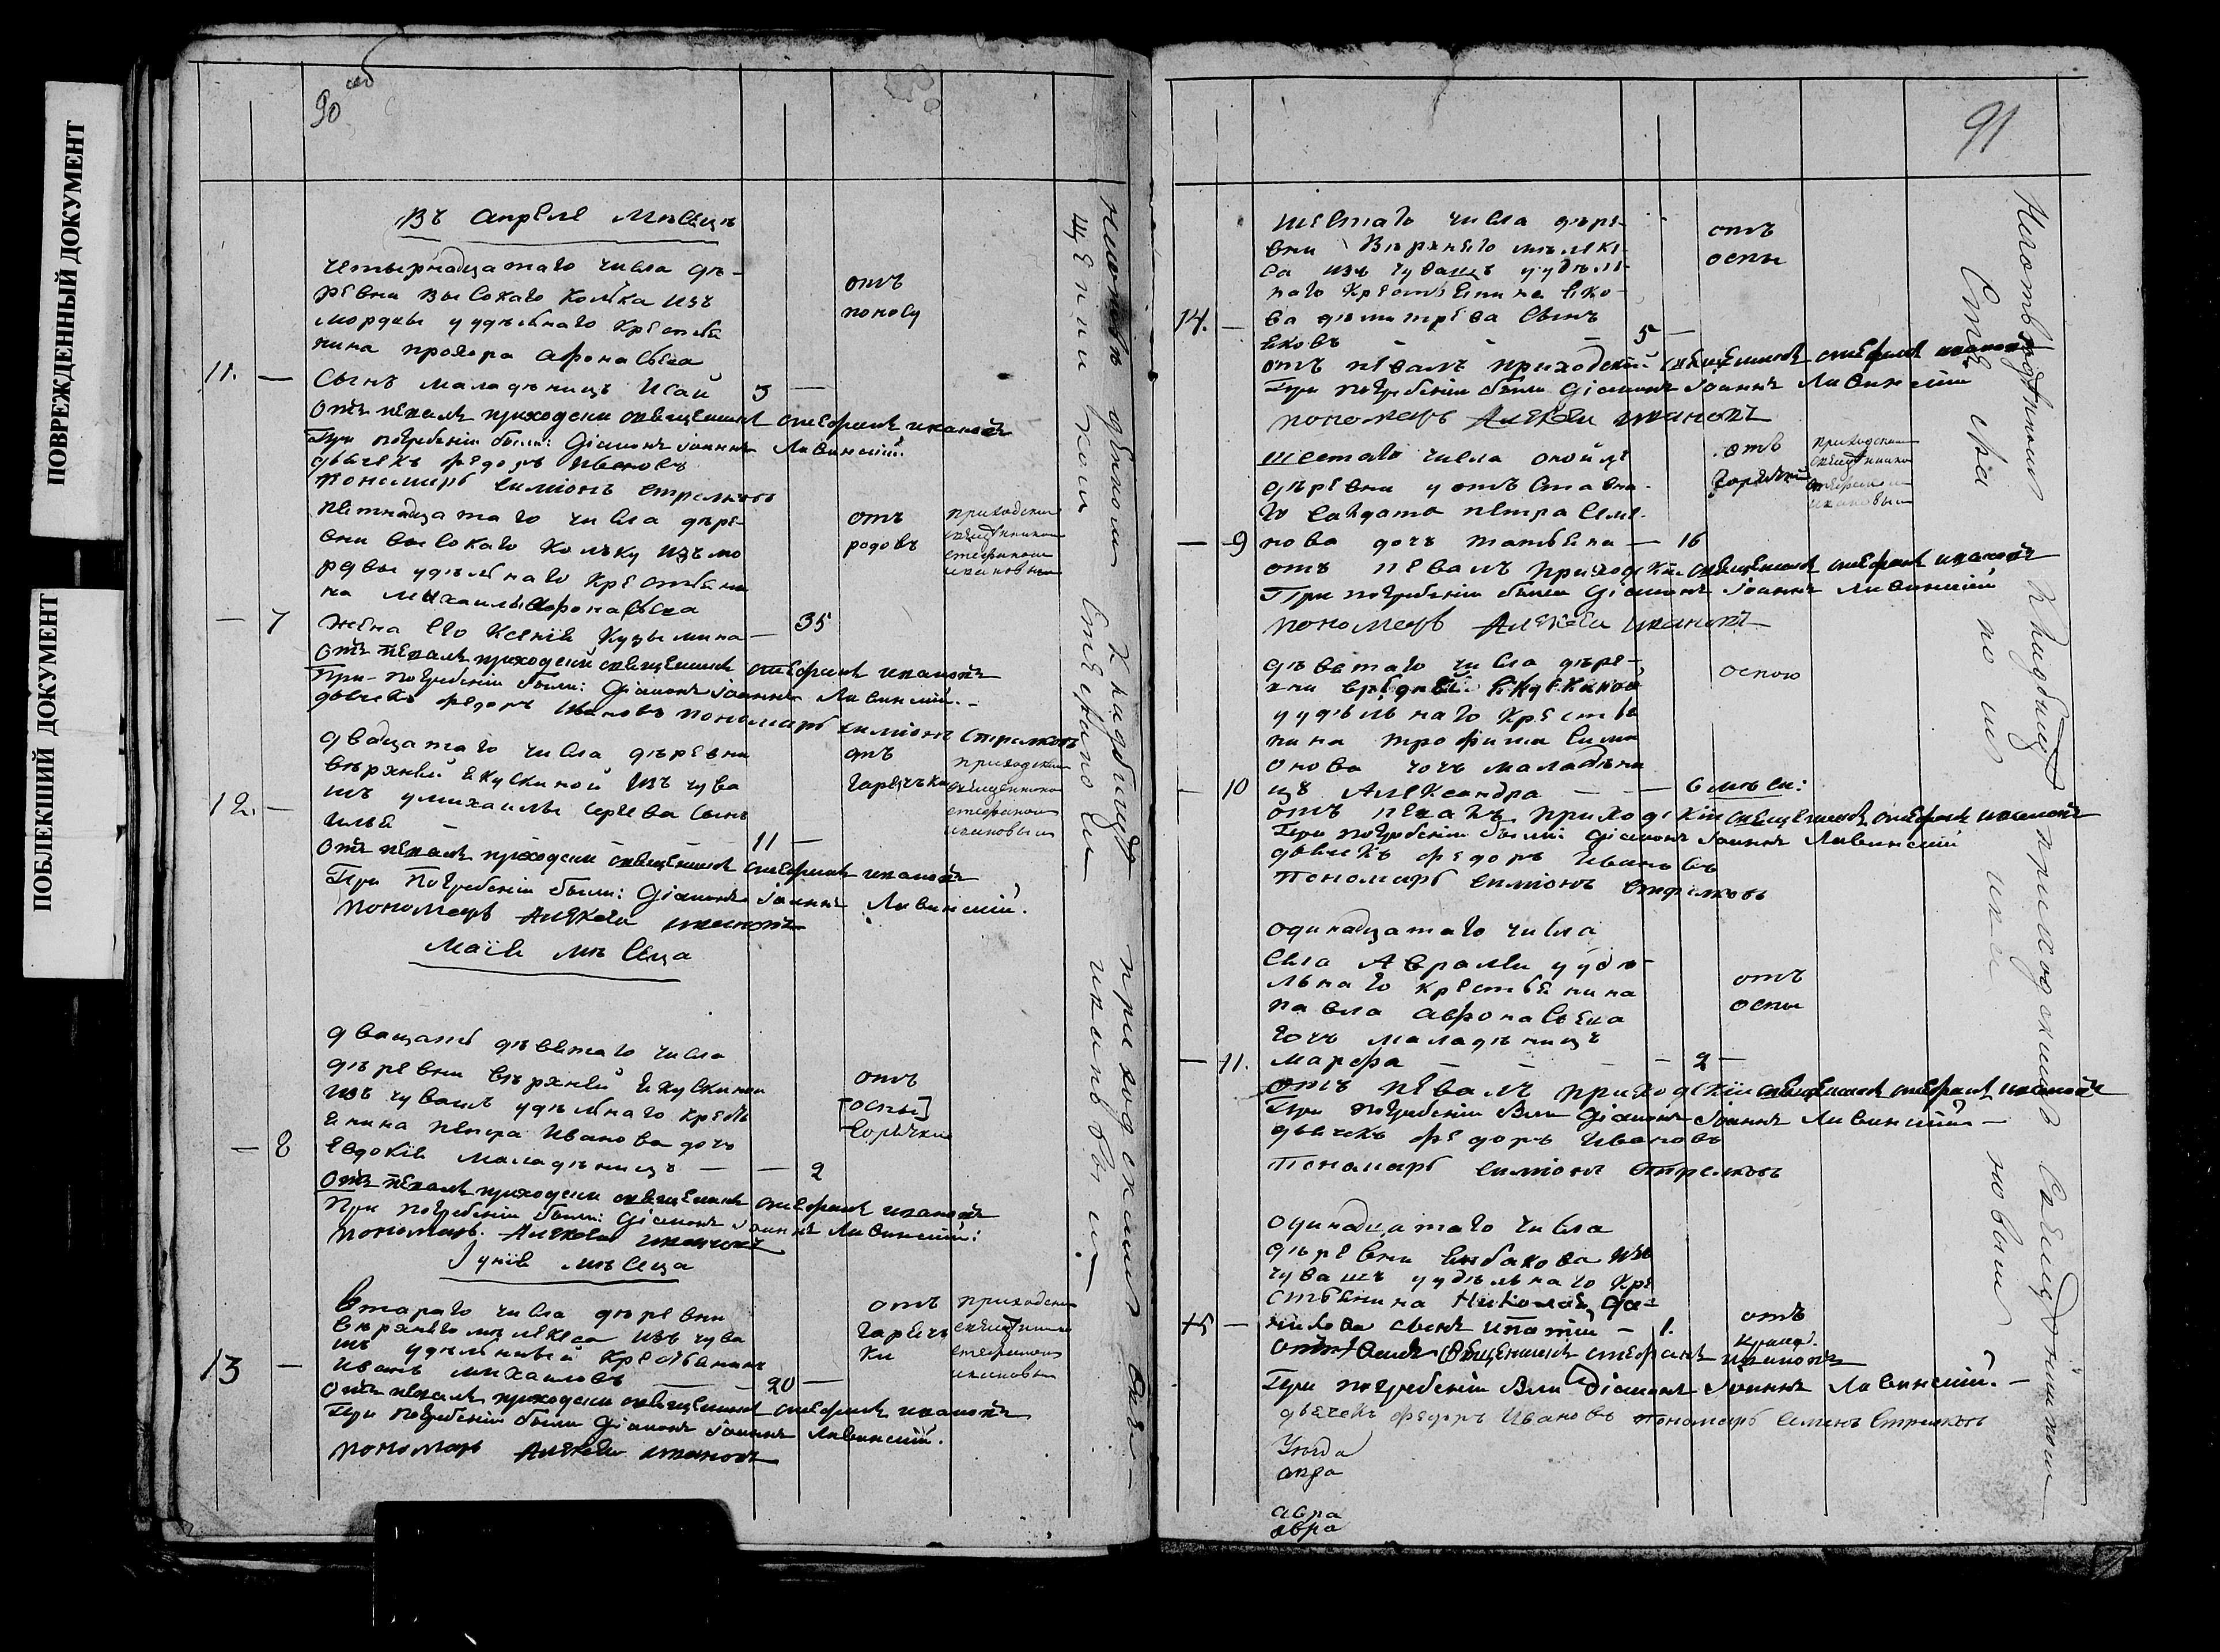 ПОВРЕЖДЕННЫЙ ДОКУМЕНТ
ПОБЛЕКШИЙ ДОКУМЕНТ
90 об
Въ апреле мѣсецъ
четырнадцатаго числа де-
ревни высокаго колка изъ
мордвы у удѣльнаго крестья
нина прохора афонасьева
11. — сынъ маладѣнецъ Исай 3 —
отъ
поносу
отъ певалъ приходски священникъ стефанъ ивановъ
При погребеніи были: діаконъ Іоаннъ Лавинскій.
дьячекъ федоръ Ивановъ
пономарь симіонъ стрелковъ
петнадцатаго числа дере-
вни высокаго колку изъ мо
рдвы удѣльнаго крестьяни
на михаилы афонасьева
— 7 жена его Ксеніѣ Кузьмина — 35
отъ
родовъ
приходским
священником
стефаном
ивановым
отъ певалъ приходски священникъ стефанъ ивановъ
При погребеніи были: діаконъ Іоаннъ Лавинскій. —
дьячекъ федоръ Ивановъ пономарь симіонъ Стрелковъ
двадцатаго числа деревни
верхней екускиной изъ чува
шъ у михаилы серева сынъ
12. — илья 11 —
отъ
гарячьки
приходским
священником
стефаном
ивановым
отъ певалъ приходски священникъ стефанъ ивановъ
При погребеніи были: діаконъ Іоаннъ Лавинскій.
пономарь Алексеи ивановъ
Маія мѣсеца
дващать девятаго числа
деревни верхней екускиной
изъ чувашъ удѣльнаго кресть
енина петра Иванова дочь
— 8 Евдокія маладенецъ — — 2
отъ
[оспы]
горячки
отъ певалъ приходски священникъ стефанъ ивановъ
При погребеніи были: діаконъ Іоаннъ Лавинскій.
пономарь. Алексеи ивановъ
Іуніѣ мѣсеца
втараго числа деревни
верхнего мелекеса изъ чува
шъ удѣльный крестьянинъ
13 — Иванъ михаиловъ — 20 —
отъ
гаряч
ки
приходским
священником
стефаном
ивановым
отъ певалъ приходски священникъ стефанъ ивановъ
При погребеніи были діаконъ Іоаннъ Лавинскій.
пономарь Алексеи ивановъ
на кладбище приходским
Стефаном ивановым —
91
шестаго числа дере-
вни верхнего мелеке-
са изъ чувашъ у удѣль-
наго крестьенина яко-
ва дмитрева сынъ
14. — яковъ — — 5 —
отъ
оспы
отъ певалъ приходский священникъ стефанъ ивановъ
При погребеніи были діаконъ Іоаннъ Лавинскій
пономарь Алексеи ивановъ
шестаго числа
деревни у отъ ставна-
го салдата петра семе-
— 9 нова дочь татьяна — 16
отъ
горячки
приходским
священником
стефаном
ивановым
отъ певалъ приходскіи священникъ стефанъ ивановъ
При погребеніи были діаконъ Іоаннъ Лавинскій
пономарь Алексеи ивановъ
деветаго числа дере-
вни средней екускиной
у удѣльнаго крестья
нина трофима сими
онова дочь маладѣни
— 10 цъ Александра — — 6 мѣсец:
оспою
отъ певалъ приходскіи священникъ стефанъ ивановъ
При погребеніи были діаконъ Іоаннъ Лавинскій
дьячекъ федоръ Ивановъ
Пономарь симіонъ стрелковъ
одинадцатаго числа
села Авралеи у удѣ-
льнаго крестьенина
павла афонасьева
дочь маладѣницъ
— 11. марфа — — — 2 —
отъ
оспы
отъ певалъ приходскіи священникъ стефанъ ивановъ
При погребеніи были діаконъ Іоаннъ Лавинскій —
дьячекъ федоръ Ивановъ
Пономарь симіонъ стрелковъ
одинадцатаго числа
деревни енбакова изъ
чувашъ у удѣльнаго кре
стьенина Николая да-
15 — нилова сынъ ипатий — 1.
отъ
священникъ стефанъ ивановъ
При погребеніи были діаконъ Іоаннъ Лавинскій. —
дьячекъ федоръ Ивановъ пономарь семенъ стрелковъ
авра
авра
на кладбище приходским священником
Стефаном ивановым